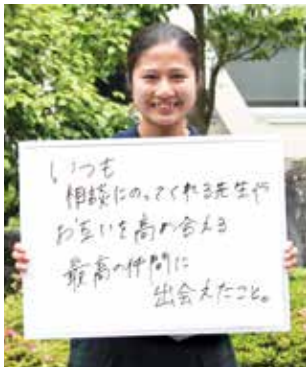 いつも
相談にのってくれる先生や
お互いを高め合える
最高の仲間に
出会えたこと。